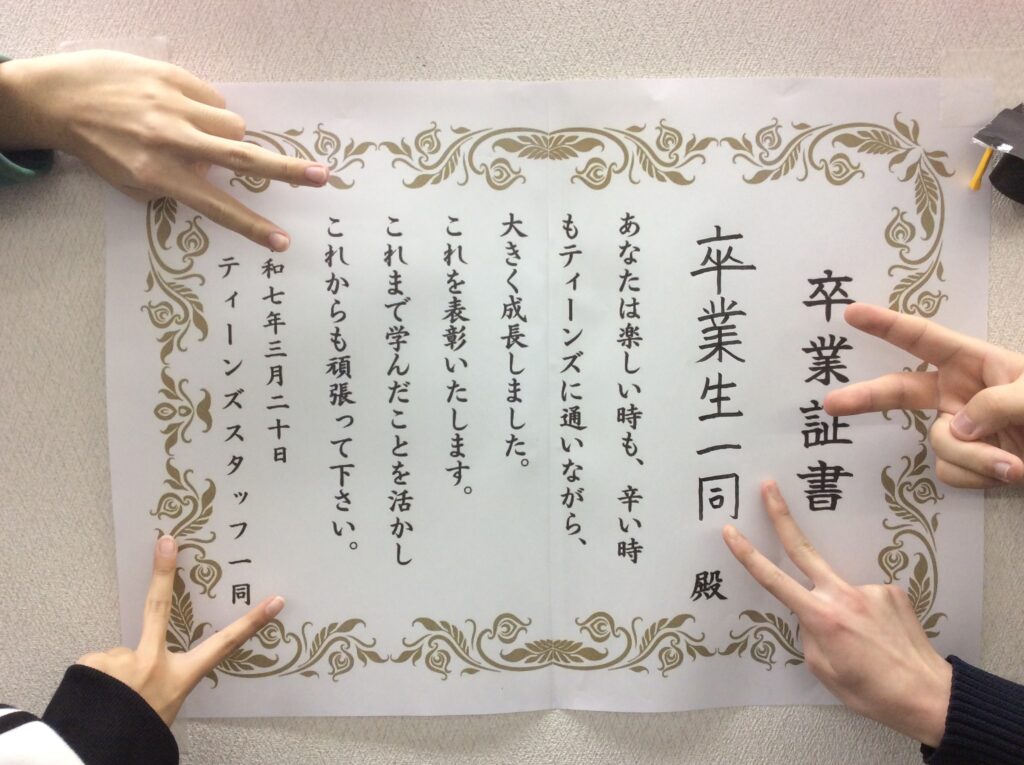 卒業証書
卒業生一同 殿
あなたは楽しい時も、辛い時
もティーンズに通いながら、
大きく成長しました。
これを表彰いたします。
これまで学んだことを活かし
これからも頑張って下さい。
和七年三月二十日
ティーンズスタッフ一同